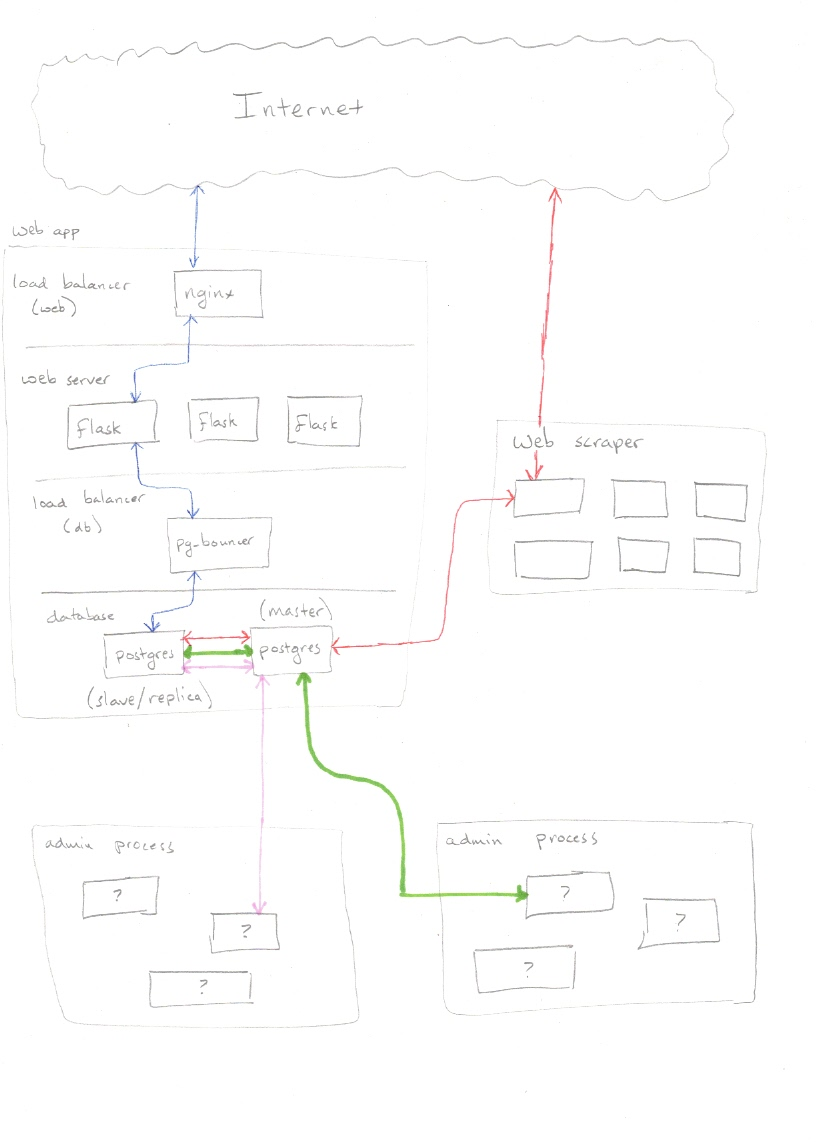 Internet
web app
load balancer
(web)
nginx
web server
flask
flask
flask
load balancer
(db)
pg-bouncer
database
(master)
postgres
postgres
(slave/replica)
Web scraper
admin process
?
?
?
admin process
?
?
?